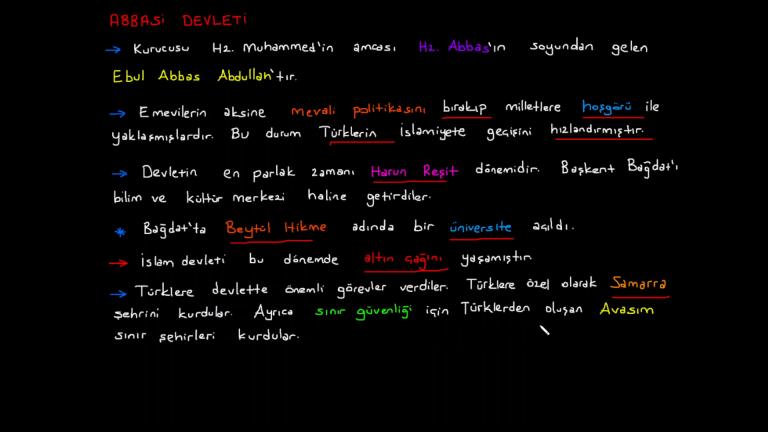 ABBASİ DEVLETİ
→ Kurucusu Hz. Muhammed'in amcası Hz. Abbas'ın soyundan gelen
Ebul Abbas Abdullah'tır.
→ Emevilerin aksine mevali politikasını bırakıp milletlere hoşgörü ile
yaklaşmışlardır. Bu durum Türklerin İslamiyete geçişini hızlandırmıştır.
→ Devletin en parlak zamanı Harun Reşit dönemidir. Başkent Bağdat'ı
bilim ve kültür merkezi haline getirdiler.
* Bağdat'ta Beytül Hikme adında bir üniversite açıldı.
→ İslam devleti bu dönemde altın çağını yaşamıştır.
→ Türklere devlette önemli görevler verdiler. Türklere özel olarak Samarra
şehrini kurdular. Ayrıca sınır güvenliği için Türklerden oluşan Avasım
sınır şehirleri kurdular.